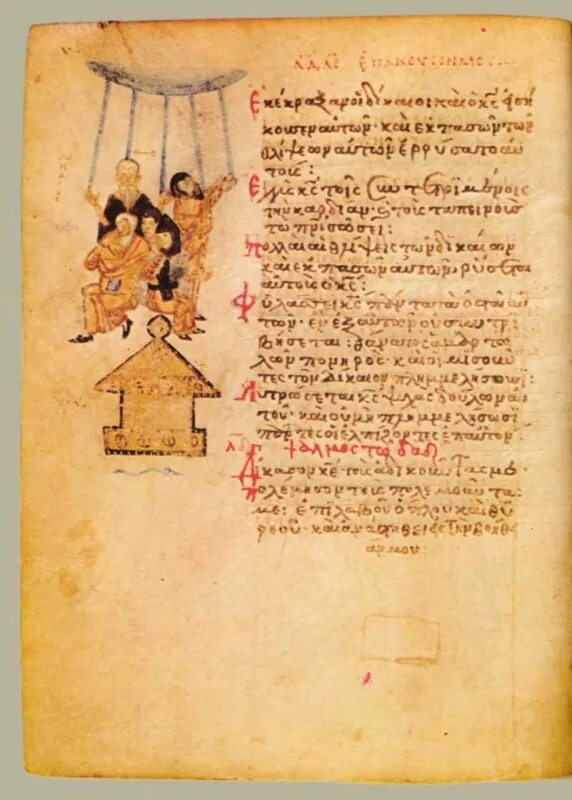 Εκέκραξαν οἱ δίκαιοι καὶ ὁ κς εἰσή
κουσεν αὐτῶν· καὶ ἐκ πασῶν τῶν
θλίψεων αὐτῶν ἐρρύσατο αὐ
τούς:
Εγγὺς κς τοῖς συντετριμμένοις
τὴν καρδίαν· καὶ τοὺς ταπεινοὺς
τῷ πνι σώσει:
Πολλαὶ αἱ θλίψεις τῶν δικαίων
καὶ ἐκ πασῶν αὐτῶν ῥύσεται
αὐτοὺς ὁ κς:
Φυλάσσει κς πάντα τὰ ὀστᾶ αὐ
τῶν· ἓν ἐξ αὐτῶν οὐ συντρι
βήσεται: θάνατος ἁμαρτω
λῶν πονηρός· καὶ οἱ μισοῦν
τες τὸν δίκαιον πλημμελήσουσι:
Λυτρώσεται κς ψυχὰς δούλων αὐ
τοῦ· καὶ οὐ μὴ πλημμελήσωσι
πάντες οἱ ἐλπίζοντες ἐπ αὐτόν:
ψαλμὸς τῷ δαδ
Δίκασον κε τοὺς ἀδικοῦντάς με
πολέμησον τοὺς πολεμοῦντάς
με: ἐπιλαβοῦ ὅπλου καὶ θυ
ρεοῦ· καὶ ἀνάστηθι εἰς τὴν βοήθει
άν μου: